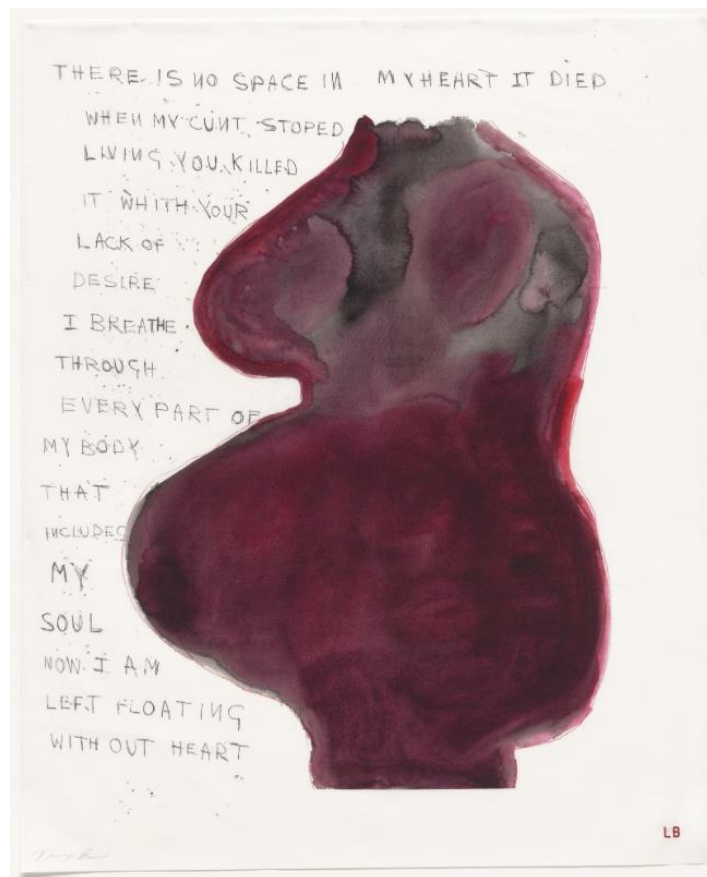 THERE IS NO SPACE IN MY HEART IT DIED
WHEN MY CUNT STOPED
LIVING YOU KILLED
IT WHITH YOUR
LACK OF
DESIRE
I BREATHE
THROUGH
EVERY PART OF
MY BODY
THAT
INCLUDES
MY
SOUL
NOW I AM
LEFT FLOATING
WITH OUT HEART
LB